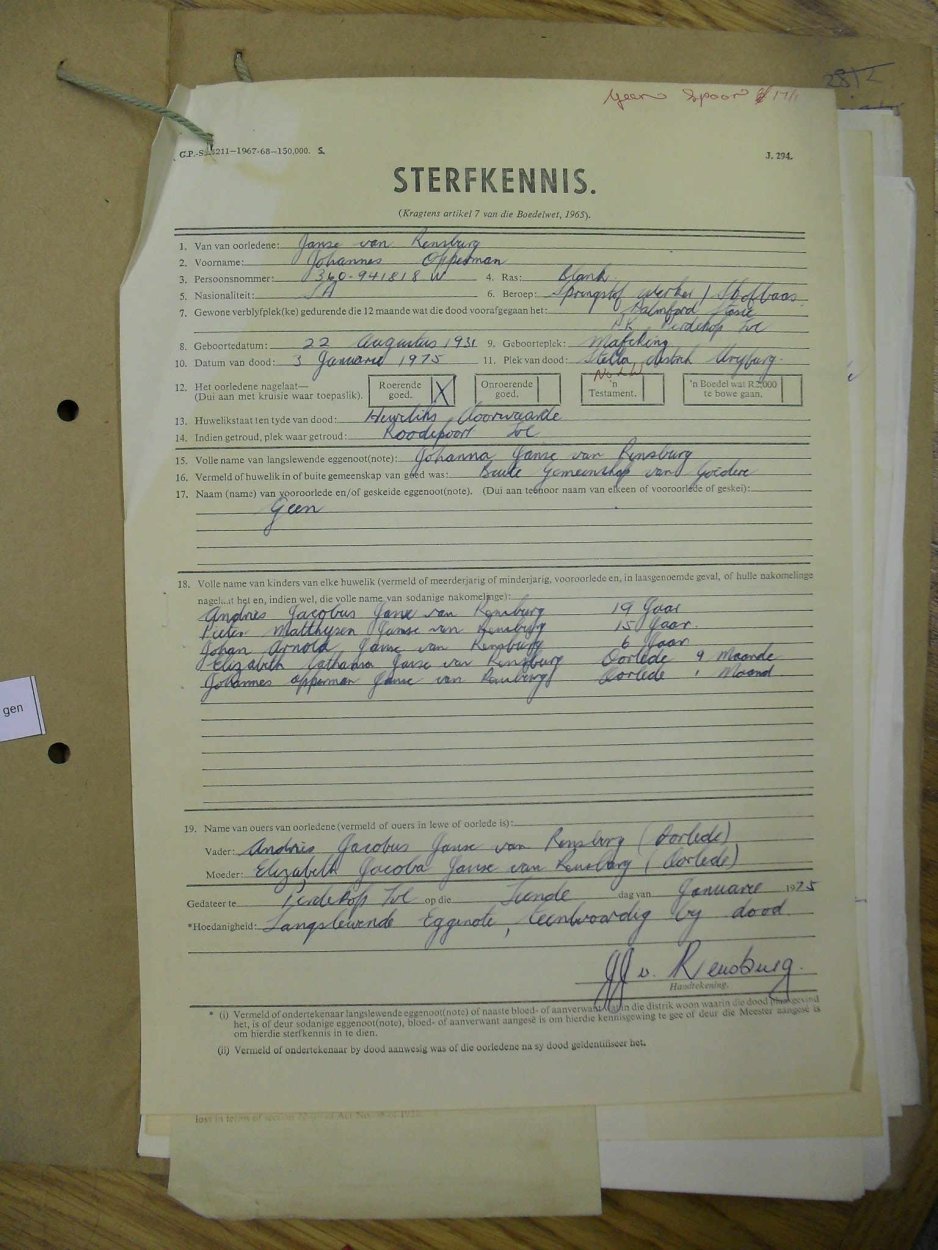 Geen Spoor
G.P.-S. 4211—1967-68—150,000. S. J. 294.
STERFKENNIS.
(Kragtens artikel 7 van die Boedelwet, 1965).
1. Van van oorledene: Janse van Rensburg
2. Voorname: Johannes Opperman
3. Persoonsnommer: 360-941818 W 4. Ras: Blank.
5. Nasionaliteit: SA 6. Beroep: Springstof werker / Skofbaas
7. Gewone verblyfplek(ke) gedurende die 12 maande wat die dood voorafgegaan het: Palmford Stasie
PK Perdekop Tvl
8. Geboortedatum: 22 Augustus 1931 9. Geboorteplek: Mafeking
10. Datum van dood: 3 Januarie 1975 11. Plek van dood: Stella distrik Vryburg.
12. Het oorledene nagelaat—
(Dui aan met kruisie waar toepaslik).
Roerende goed. X
Onroerende goed.
'n Testament.
'n Boedel wat R2,000 te bowe gaan.
13. Huwelikstaat ten tyde van dood: Huweliks Voorwaarde
14. Indien getroud, plek waar getroud: Roodepoort Tvl
15. Volle name van langslewende eggenoot(note): Johanna Janse van Rensburg
16. Vermeld of huwelik in of buite gemeenskap van goed was: Buite Gemeenskap van Goedere
17. Naam (name) van vooroorlede en/of geskeide eggenoot(note). (Dui aan teenoor naam van elkeen of vooroorlede of geskei):
Geen
18. Volle name van kinders van elke huwelik (vermeld of meerderjarig of minderjarig, vooroorlede en, in laasgenoemde geval, of hulle nakomelinge
nagelaat het en, indien wel, die volle name van sodanige nakomelinge):
Andries Jacobus Janse van Rensburg 19 Jaar
Pieter Matthysen Janse van Rensburg 15 Jaar.
Johan Arnold Janse van Rensburg 6 Jaar
Elizabeth Catharina Janse van Rensburg Oorlede 9 Maande
Johannes opperman Janse van Rensburg Oorlede 1 Maand
19. Name van ouers van oorledene (vermeld of ouers in lewe of oorlede is):
Vader: Andries Jacobus Janse van Rensburg (Oorlede)
Moeder: Elizabeth Jacoba Janse van Rensburg (Oorlede)
Gedateer te Perdekop Tvl op die Tiende dag van Januarie 1975
*Hoedanigheid: Langslewende Eggenote, Teenwoordig by dood.
JJ v. Rensburg.
Handtekening.
* (i) Vermeld of ondertekenaar langslewende eggenoot(note) of naaste bloed- of aanverwant van in die distrik woon waarin die dood plaasgevind
het, is of deur sodanige eggenoot(note), bloed- of aanverwant aangesê is om hierdie kennisgewing te gee of deur die Meester aangesê is
om hierdie sterfkennis in te dien.
(ii) Vermeld of ondertekenaar by dood aanwesig was of die oorledene na sy dood geïdentifiseer het.
gen